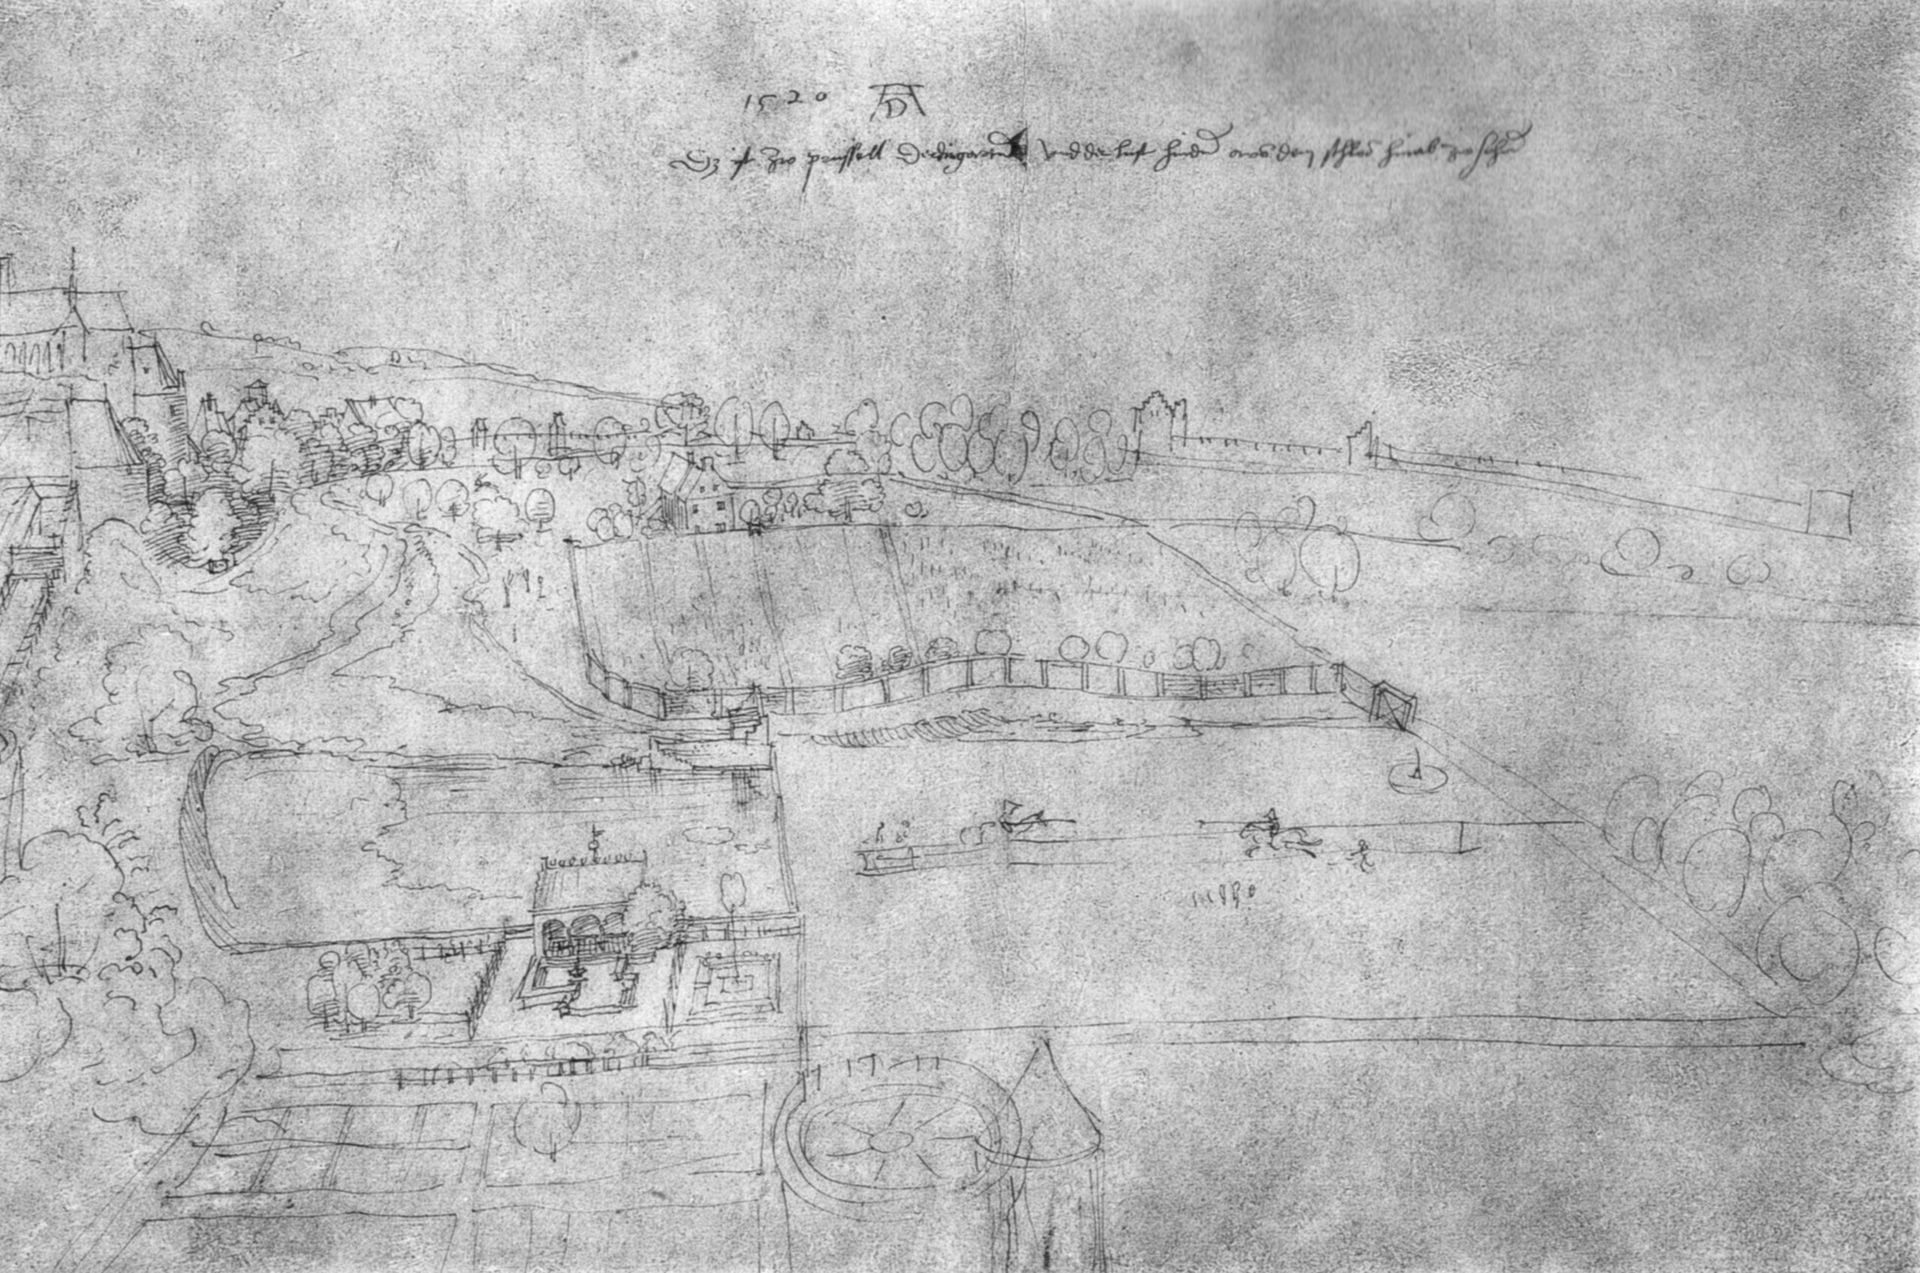 1520 AD
Dz ist zw prüssell der diergarten vnd die lust hinden aws dem schlos hinab zw sehen